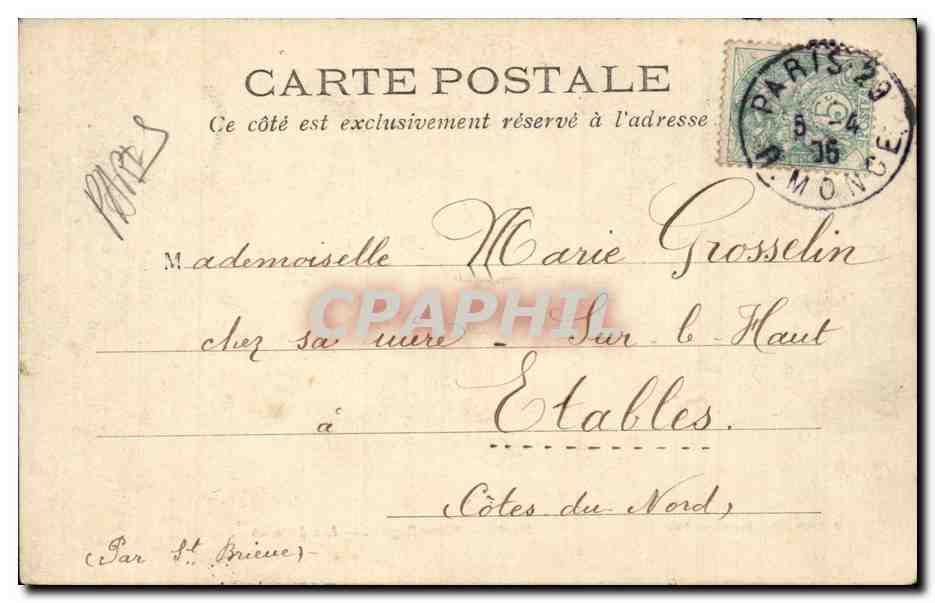 CARTE POSTALE
Ce côté est exclusivement réservé à l'adresse
PARIS 29
5 - 4
05
R. MONGE
PARIS
Mademoiselle Marie Grosselin
CPAPHIL
chez sa mère - Sur-le-Haut
à Etables.
(Côtes du Nord)
(Par St Brieuc)